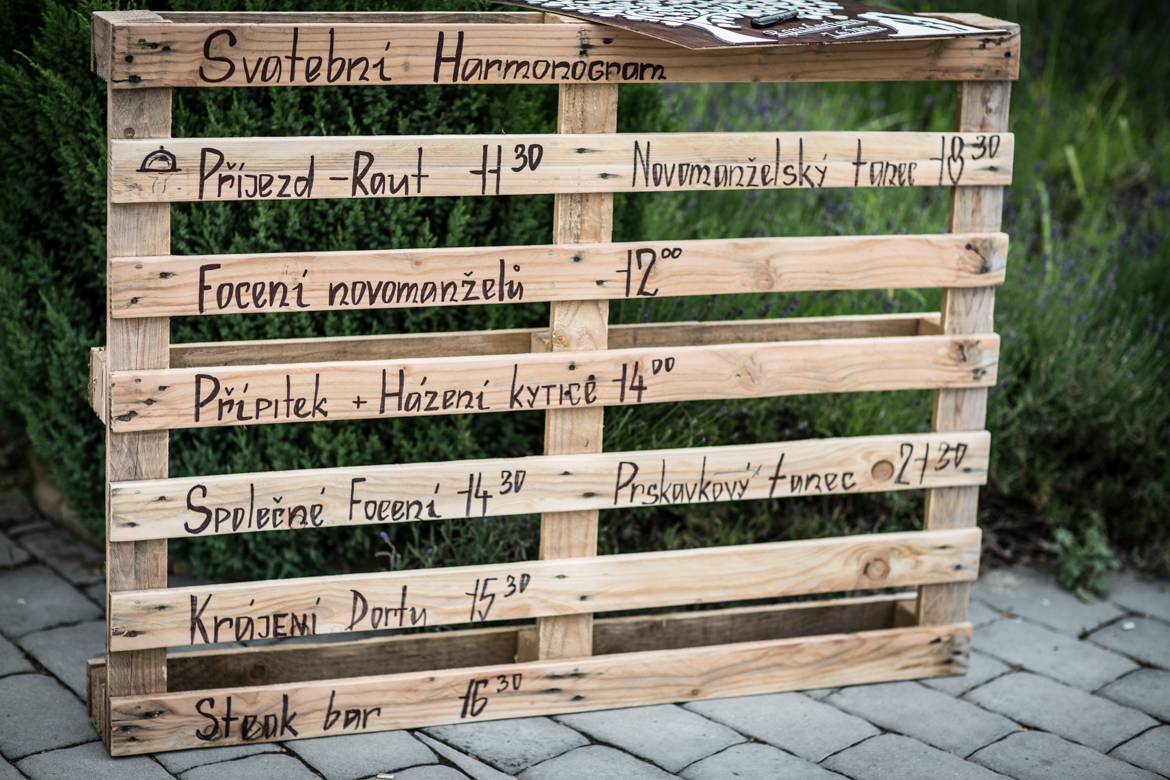 Svatební Harmonogram
Příjezd - Raut 11³⁰
Novomanželský tanec 18³⁰
Focení novomanželů 12⁰⁰
Přípitek + Házení kytice 14⁰⁰
Společné Focení 14³⁰
Prskavkový tanec 21³⁰
Krájení Dortu 15³⁰
Steak bar 16³⁰